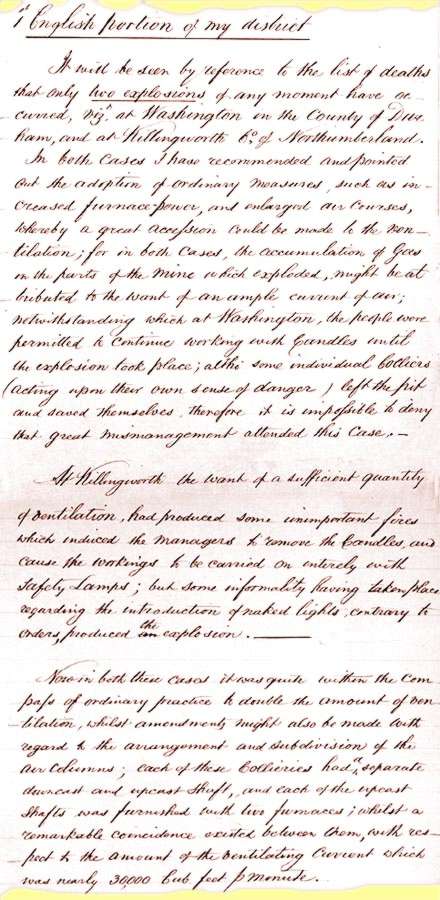 1st English portion of my district
It will be seen by reference to the list of deaths
that only two explosions of any moment have oc-
curred, viz. at Washington in the County of Dur-
ham, and at Killingworth Co. of Northumberland.
In both Cases I have recommended and pointed
out the adoption of ordinary measures, such as in-
creased furnace-power, and enlarged air Courses,
whereby a great accession could be made to the ven-
tilation; for in both Cases, the accumulation of Gas
in the parts of the mine which exploded, might be at
tributed to the want of an ample current of air;
notwithstanding which at Washington, the people were
permitted to continue working with Candles until
the explosion took place; altho' some individual Colliers
(acting upon their own sense of danger) left the pit
and saved themselves, therefore it is impossible to deny
that great mismanagement attended this Case. —
At Killingworth the want of a sufficient quantity
of ventilation, had produced some unimportant fires
which induced the Managers to remove the Candles, and
cause the workings to be carried on entirely with
Safety Lamps; but some informality having taken place
regarding the introduction of naked lights, contrary to
orders, produced the explosion. ——
Now in both these cases it was quite within the Com-
pass of ordinary practice to double the amount of ven-
tilation, whilst amendments might also be made with
regard to the arrangement and subdivision of the
air Columns; each of these Collieries had a separate
downcast and upcast Shaft, and each of the upcast
Shafts was furnished with two furnaces; whilst a
remarkable coincidence existed between them, with res-
pect to the amount of the ventilating Current which
was nearly 30,000 Cub feet p Minute.